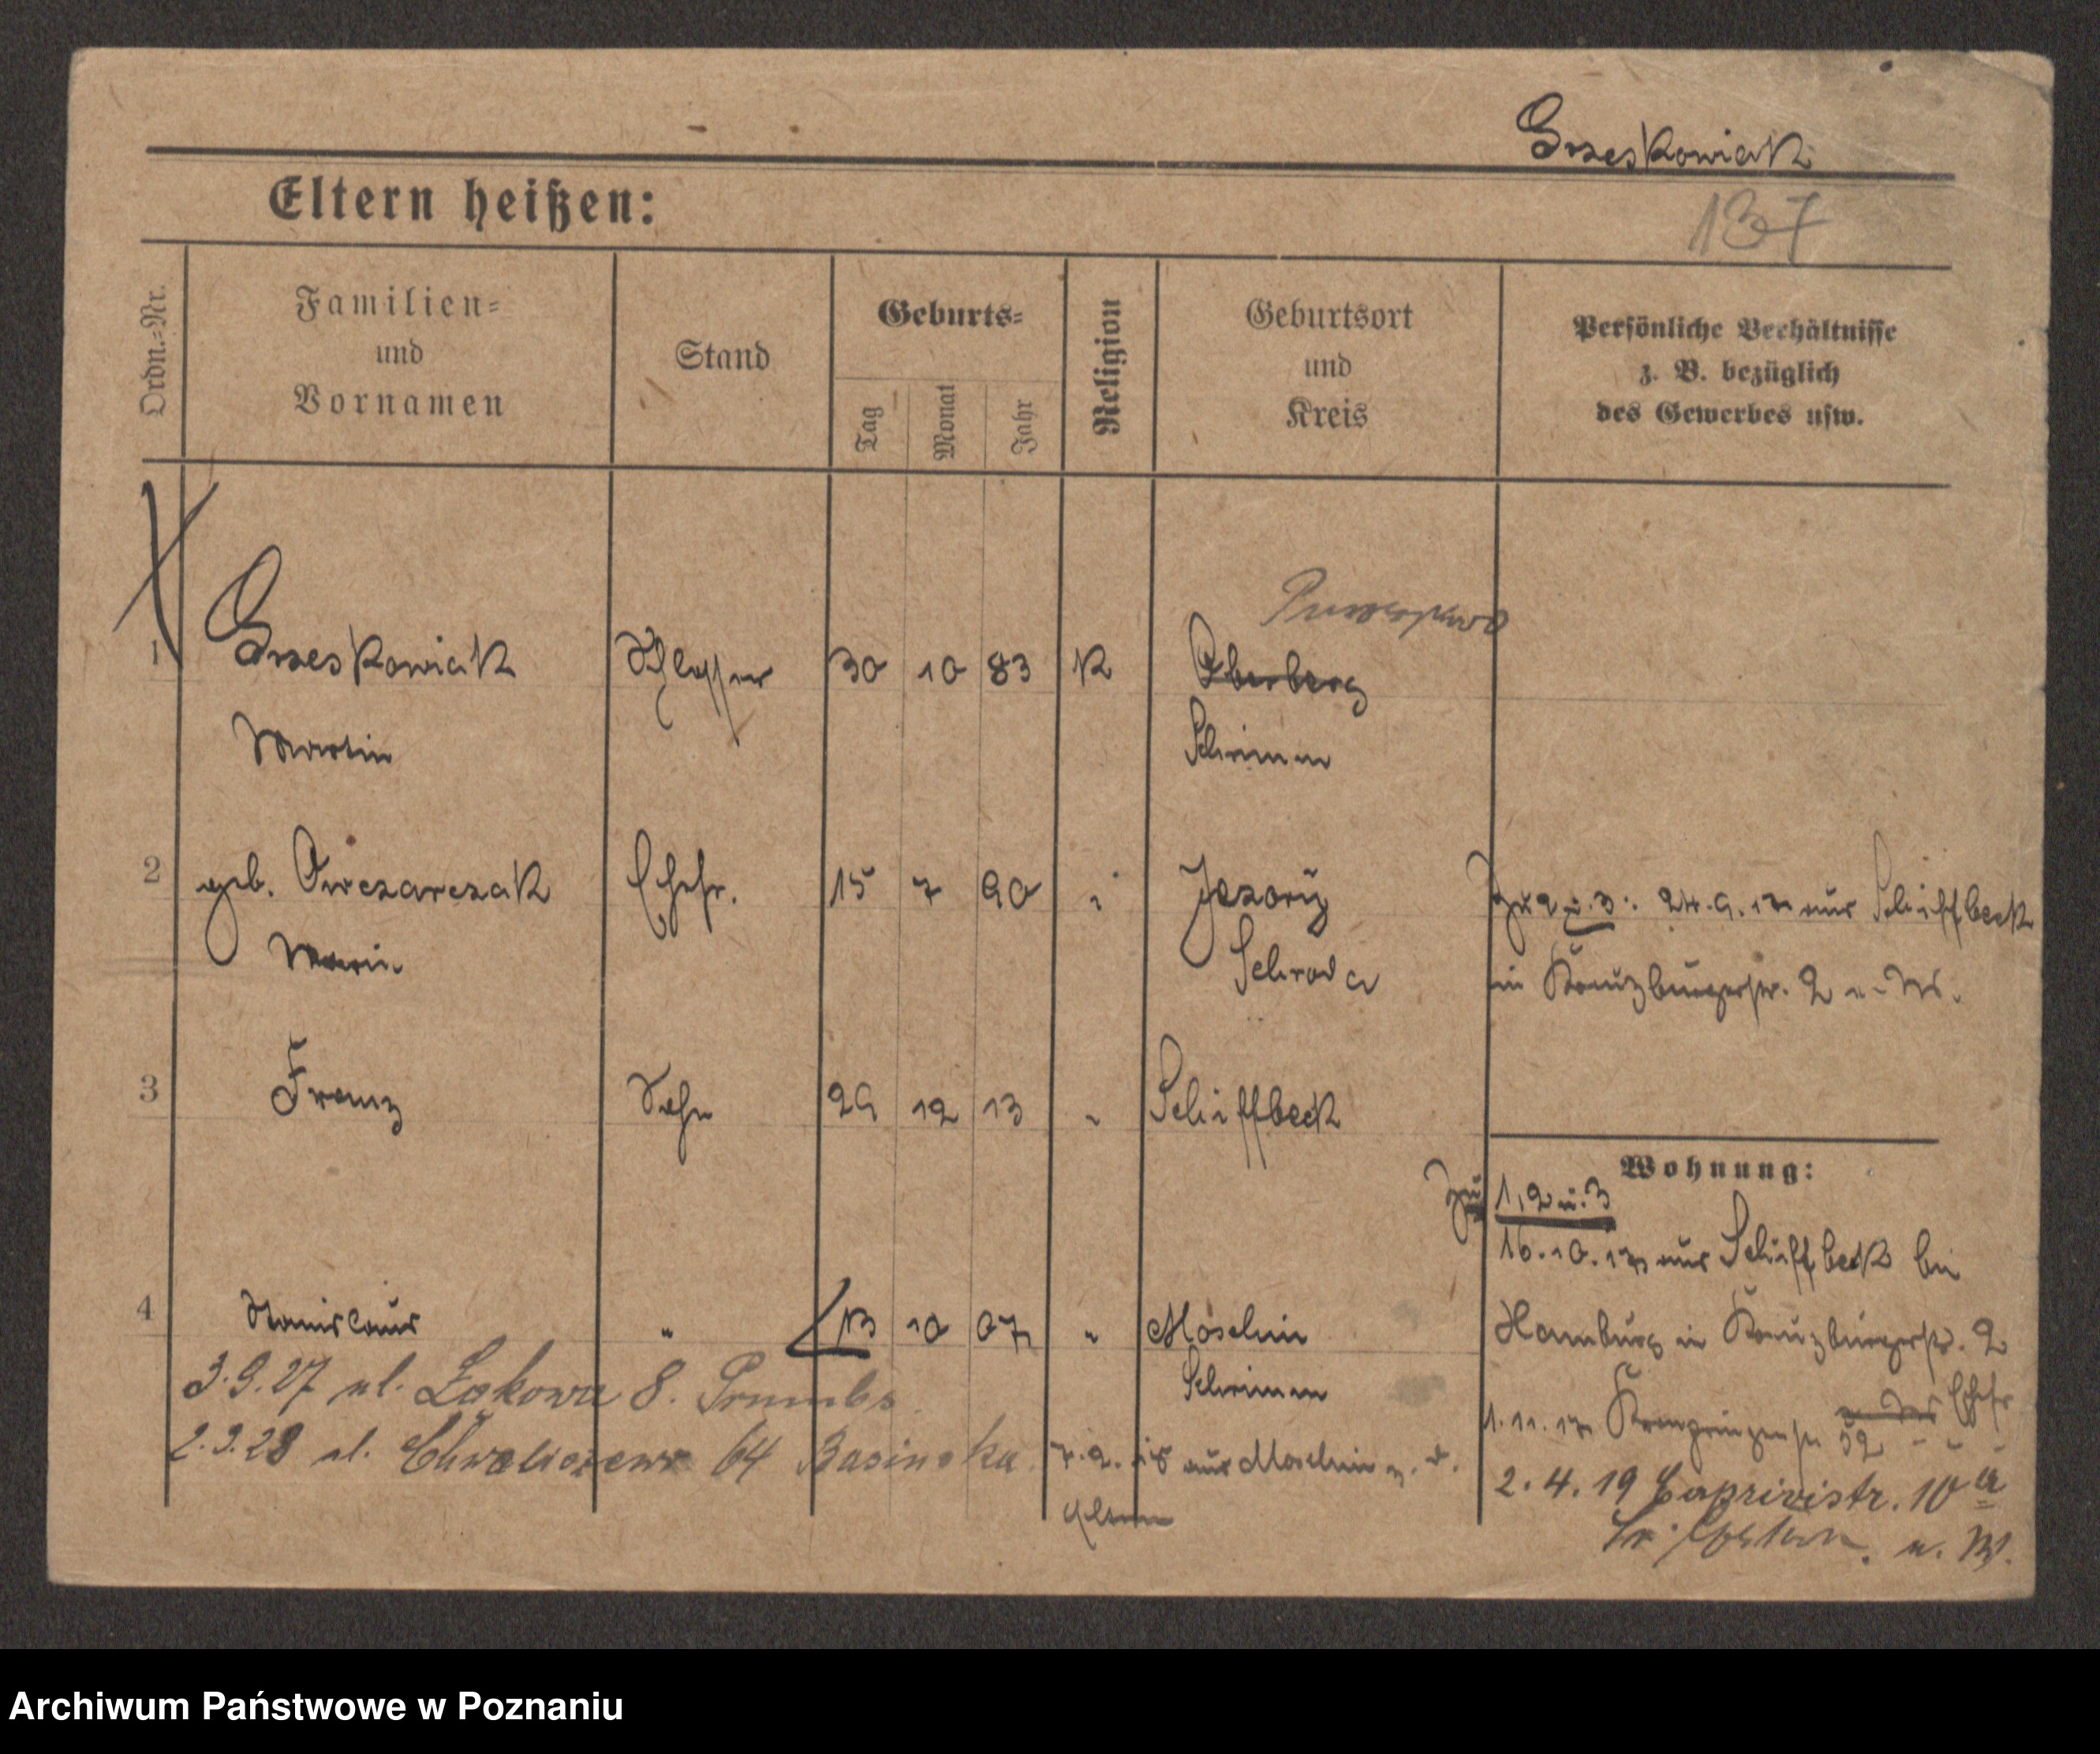 Grzeskowiak
137
Eltern heißen:
Ordn.-Nr.
Familien-
und
Vornamen
Stand
Geburts-
Tag
Monat
Jahr
Religion
Geburtsort
und
Kreis
Persönliche Verhältnisse
z. B. bezüglich
des Gewerbes usw.
1 Grzeskowiak Schlosser 30 10 83 K Oberberg
Martin Schrimm
2 geb. Owczarczak Ehefr. 15 7 90 " Jezory
Marie Schroda
zu 2 u. 3: 24.9.17 aus Schiffbeck
in Kreuzburgerstr. 2 u. W.
3 Franz Sohn 29 12 13 " Schiffbeck
Wohnung:
zu 1, 2 u. 3
16.10.17 aus Schiffbeck bei
Hamburg in Kreuzburgerstr. 2
4 Stanislaus " 13 10 07 " Moschin
Schrimm
3.9.27 ul. Łąkowa 8.
2.3.28 ul. 64
7.2.18 aus Moschin z. d.
Eltern
1.11.17 52 Ehefr
2.4.19 Caprivistr. 10a
u. W.
Archiwum Państwowe w Poznaniu